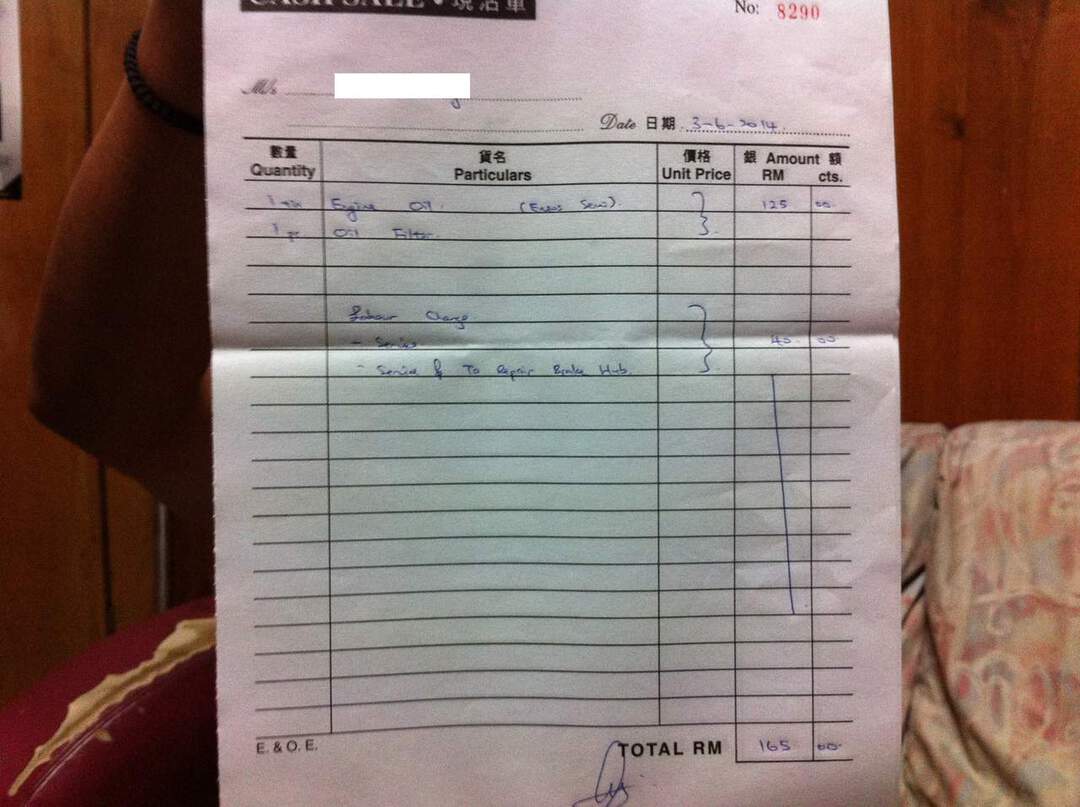 CASH SALE • 現沽單
No: 8290
M/s
Date 日期 3-6-2014.
數量 貨名 價格 銀 Amount 額
Quantity Particulars Unit Price RM cts.
Engine Oil. 125 00.
1 pc Oil Filter.
Labour Charge
- Service 40. 00
- Service & To Repair Brake Hub.
E. & O. E. TOTAL RM 165 00.